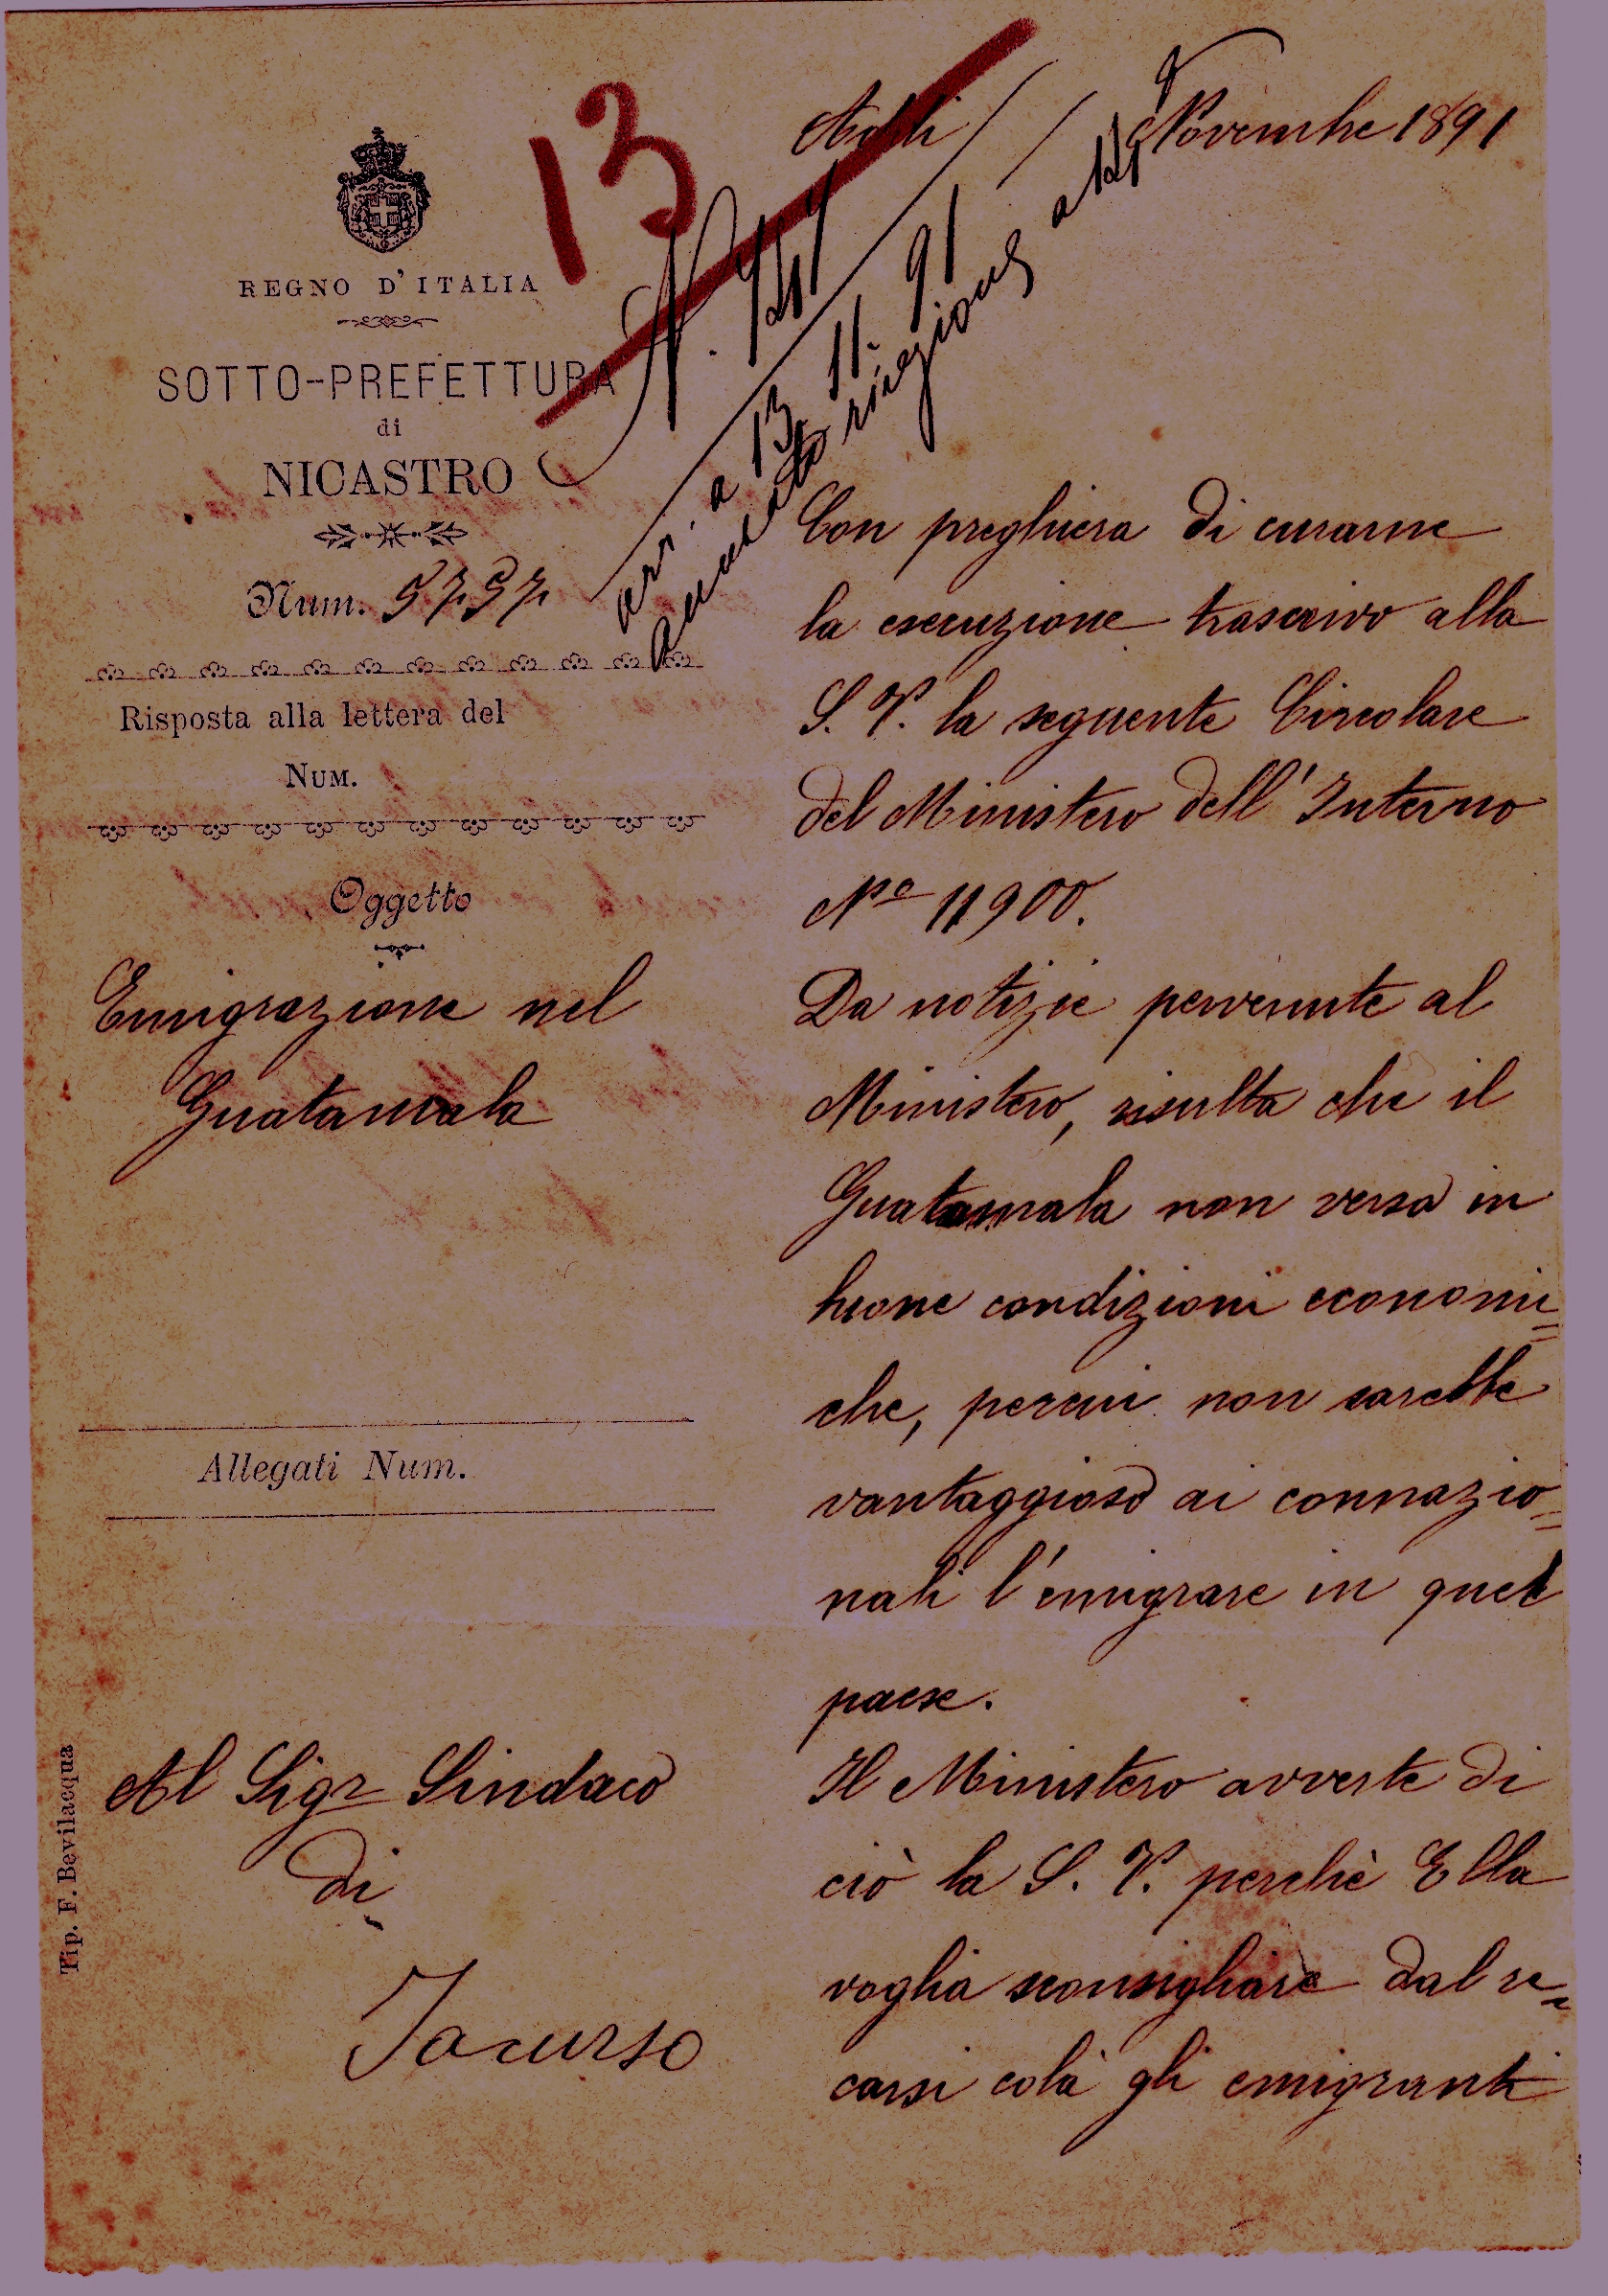 13
Addì Novembre 1891
REGNO D'ITALIA
SOTTO-PREFETTURA
di
NICASTRO
Num. 5757
N.
arr. a 13. 11. 91
ricezione
Risposta alla lettera del
NUM.
Oggetto
Emigrazione nel
Guatamala
Allegati Num.
Al Sigr Sindaco
di
Jacurso
Tip. F. Bevilacqua
Con preghiera di curarne
la esecuzione trascrivo alla
S. V. la seguente Circolare
del Ministero dell'Interno
No 11900.
Da notizie pervenute al
Ministero, risulta che il
Guatamala non versa in
buone condizioni economi=
che, percui non sarebbe
vantaggioso ai connazio=
nali l'emigrare in quel
paese.
Il Ministero avverte di
ciò la S. V. perchè Ella
voglia sconsigliare dal re=
carsi colà gli emigranti